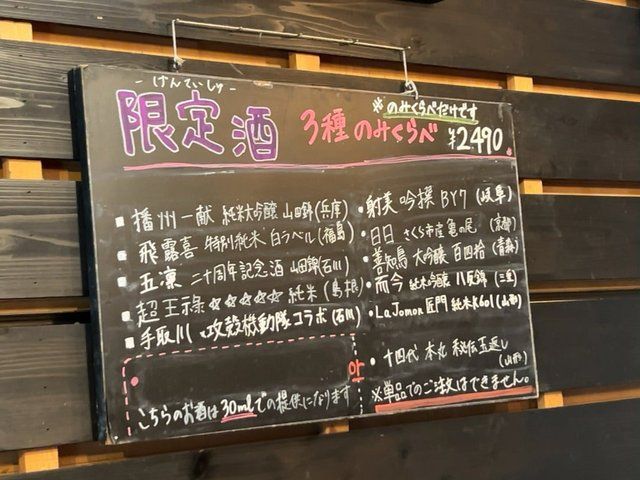 げんていしゅ
限定酒 3種のみくらべ ¥2490
※のみくらべだけです
■播州一献 純米大吟醸 山田錦(兵庫)
■飛露喜 特別純米 白ラベル(福島)
■五凛 二十周年記念酒 山田錦(石川)
■超王祿 ☆☆☆☆☆ 純米(島根)
■手取川 攻殻機動隊コラボ(石川)
こちらのお酒は30mlでの提供になります
・射美 吟撰 BY7(岐阜)
・日日 さくら市産亀の尾(京都)
・善知鳥 大吟醸 百四拾(青森)
・而今 純米吟醸 八反錦(三重)
・La Jomon 匠門 純米 K601(山形)
・十四代 本丸 秘伝玉返し
(山形)
※単品でのご注文はできません。